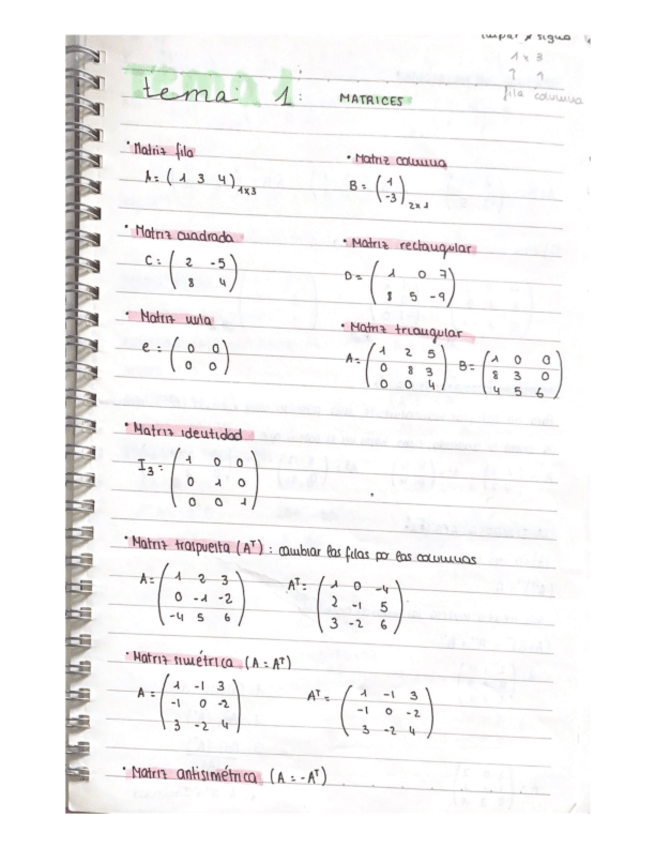 impar x signo
1 x 3
fila columna
tema 1: MATRICES
· Matriz fila
A = ( 1 3 4 ) 1x3
· Matriz columna
B = ( 1
-3 ) 2x1
· Matriz cuadrada
C = ( 2 -5
8 4 )
· Matriz rectangular
D = ( 1 0 7
8 5 -9 )
· Matriz nula
e = ( 0 0
0 0 )
· Matriz triangular
A = ( 1 2 5
0 8 3
0 0 4 )
B = ( 1 0 0
8 3 0
4 5 6 )
· Matriz identidad
I3 = ( 1 0 0
0 1 0
0 0 1 )
· Matriz traspuesta (Aᵀ) : cambiar las filas por las columnas
A = ( 1 2 3
0 -1 -2
-4 5 6 )
Aᵀ = ( 1 0 -4
2 -1 5
3 -2 6 )
· Matriz simétrica (A = Aᵀ)
A = ( 1 -1 3
-1 0 -2
3 -2 4 )
Aᵀ = ( 1 -1 3
-1 0 -2
3 -2 4 )
· Matriz antisimétrica (A = -Aᵀ)